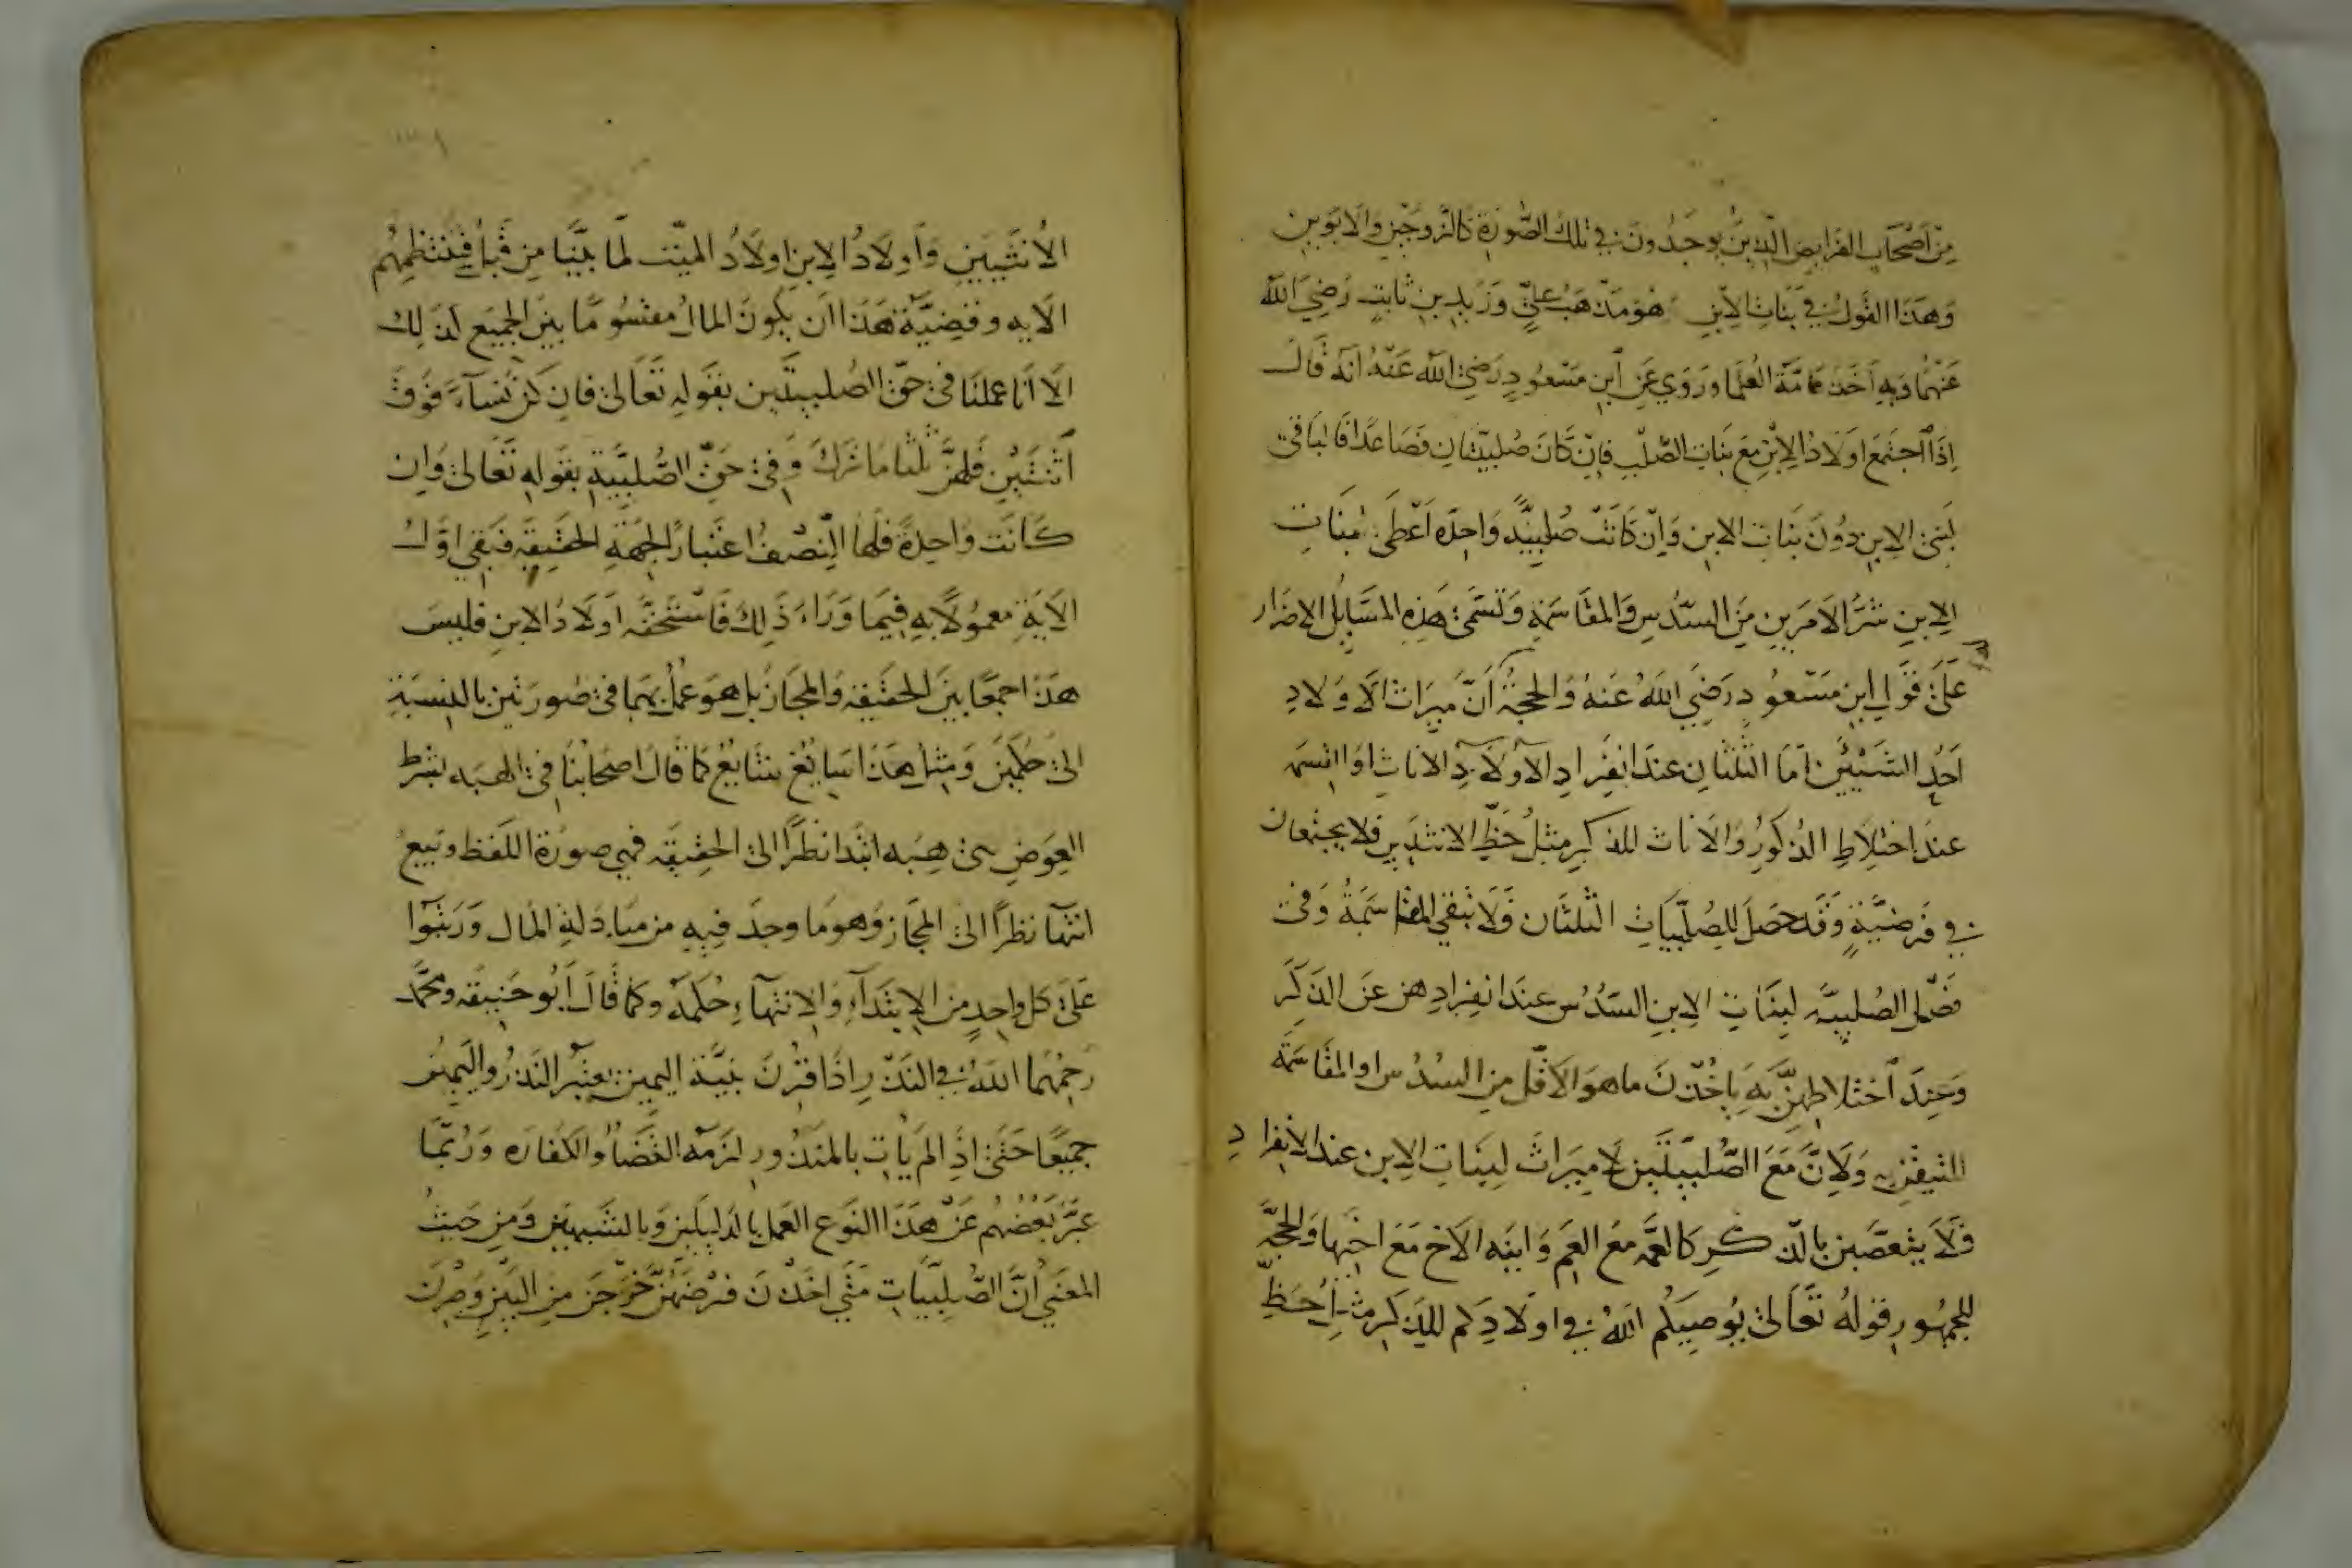 مِن اَصْحَابِ الفَرايضِ الَّذِينَ يُوجَدُونَ فِي تِلكَ الصُّورَةِ كَالزَّوجَيْنِ وَالاَبَوَيِن
وَهَذَا القَولُ فِي بَنَاتِ الاِبْنِ هُوَ مَذْهَبُ عَلِيٍّ وَزَيدِ بنِ ثَابِتٍ رَضِيَ اللَّه
عَنْهُمَا وَبِهِ اَخَذَ عَامَّة العُلَمَا وَرُوِيَ عَنِ ابنِ مَسْعُودٍ رَضِيَ اللَّه عَنْهُ اَنّهُ قَالَ
اِذَا اجتَمَعَ اوَلَادُ الاِبْنِ مَعَ بَنَاتِ الصُّلْبِ فَاِنْ كَانَ صُلبِيّتَانِ فَصَاعِدًا فَالبَاقِي
لِبَنِي الاِبنِ دُونَ بَنَاتِ الابنِ وَاِنْ كَانَتْ صُلبِيَّة وَاحِدَه اَعْطَى بَنَاتِ
الاِبنِ شَرَّ الاَمرَينِ مِنَ السُّدُسِ وَالمُقَاسَمَةِ وَتُسَمَّى هَذِهِ المَسَايِلُ الاضرَار
عَلَى قَولِ ابنِ مَسْعُودٍ رَضِيَ اللَّهُ عَنهُ وَالحجّةُ اَنَّ مِيرَاثَ الاَوْلَادِ
اَحَدُ الشَيْئَينِ امّا الثُلثَانِ عندَ انفِرَادِ الاَولَادِ الاِنَاثِ اوْ القِسمَه
عندَ اختِلَاطِ الذُكُورِ وَالاِنَاثِ للذكرِ مثلُ حَظِّ الانثَيَينِ فلا يجتمعان
فِي فَرضِيَّةٍ وَقَد حَصَلَ لِلصُّلبِيَّاتِ الثُلثَانِ فَلَا تبقَى المقاسَمَةُ وَفِي
فَصْلِ الصُلبِيّه لِبَنَاتِ الاِبنِ السُّدُسُ عِندَ انفِرَادِهنّ عَن الذَكَرِ
وَعِندَ اختلاطِهِنَّ بِهِ يَاخُذْنَ ما هوَ الاَقَلّ مِنَ السُدُسِ او المُقَاسَمَة
للتيقنِ بِه وَلِاَنَّ مَعَ الصُّلبِيّتَينِ لَا مِيرَاثَ لِبَنَاتِ الاِبنِ عندَ الانفرادِ
فَلَا يتعصَّبنَ بالذّكرِ كَالعَمَّه مَعَ العَمِ وَابنَه الاَخ مَعَ اخِيْهَا وَالحجّه
لِلجمهُورِ قولُه تَعَالَى يُوصِيكُم اللهُ فِي اولَادِكُم لِلذكرِ مثلُ حَظِّ
الاُنثَيَينِ وَاَولَادُ الاِبنِ اولَادُ الميّت لمَا بَيَّنَّا مِن قَبلُ فَتَنْتَظِمُهُم
الآيه وقضِيَّة هَذَا ان يكُونَ المالُ مقسُومًا بَين الجميعِ كذلِك
الاَ انَّا عَمِلنَا فِي حقّ الصُلبيتَين بقَولِهِ تَعَالَى فَاِن كُنّ نِسَآءً فَوقَ
اثْنَتَيْنِ فَلهنّ ثُلُثا مَا تَرَكَ وَفِي حَقِّ الصُّلبِيَّةِ بقَولِهِ تَعَالَى وَاِن
كَانَت وَاحِدَةً فلَهَا النِّصْفُ اعتبَارًا لِجهَةِ الحَقِيقَةِ فَبَقِيَ اوّلُ
الاَيَةِ معمُولًا بِهِ فِيمَا وَرَاءَ ذَلِكَ فَاسْتَحَقَّه اَولَادُ الابنِ فليسَ
هَذَا جمعًا بَينَ الحقِيقَه وَالمجَاز بل هوَ عَمَلٌ بهِمَا في صُورَتَينِ بالنِسبَةِ
الى حُكمَينِ وَمِثلُ هَذَا سَايغٌ شَايعٌ كَمَا قَالَ اصحَابُنَا في الهبَه بشرط
العِوَضِ هِي هِبَه ابتدَا نظَرًا الى الحقِيقَه فهي صورَة اللفظِ وبَيعٌ
انتهَا نَظَرًا الى المجَاز وَهوَ مَا وجِدَ فِيهِ من مبَادَلَةِ المَال وَرَتبُوا
عَلى كل واحِدٍ مِن الاِبتدَآءِ وَالاِنتهآءِ حُكمَهُ وكمَا قَالَ اَبُو حَنِيفَه ومحمّد
رَحِمَهُمَا اللهُ فِي النَذْرِ اِذَا قُرنَ بنِيَّة اليمِينِ يعتبر النَذرُ واليَمِينُ
جمِيعًا حَتَى اِذَا لم يَاتِ بالمَنذُورِ لزَمَه القَضَاءُ والكفارَه وَرُبّمَا
عَبَّرَ بَعضُهُم عَن هَذَا النَوع العَمَل بالدَلِيلَينِ وَبالشَبهَينِ وَمِن حَيثُ
المعنَى اَنَّ الصُّلبِيَّاتِ مَتَى اخَذْنَ فرْضَهُنَّ خَرَجْنَ مِنَ البَينِ وَصِرْنَ